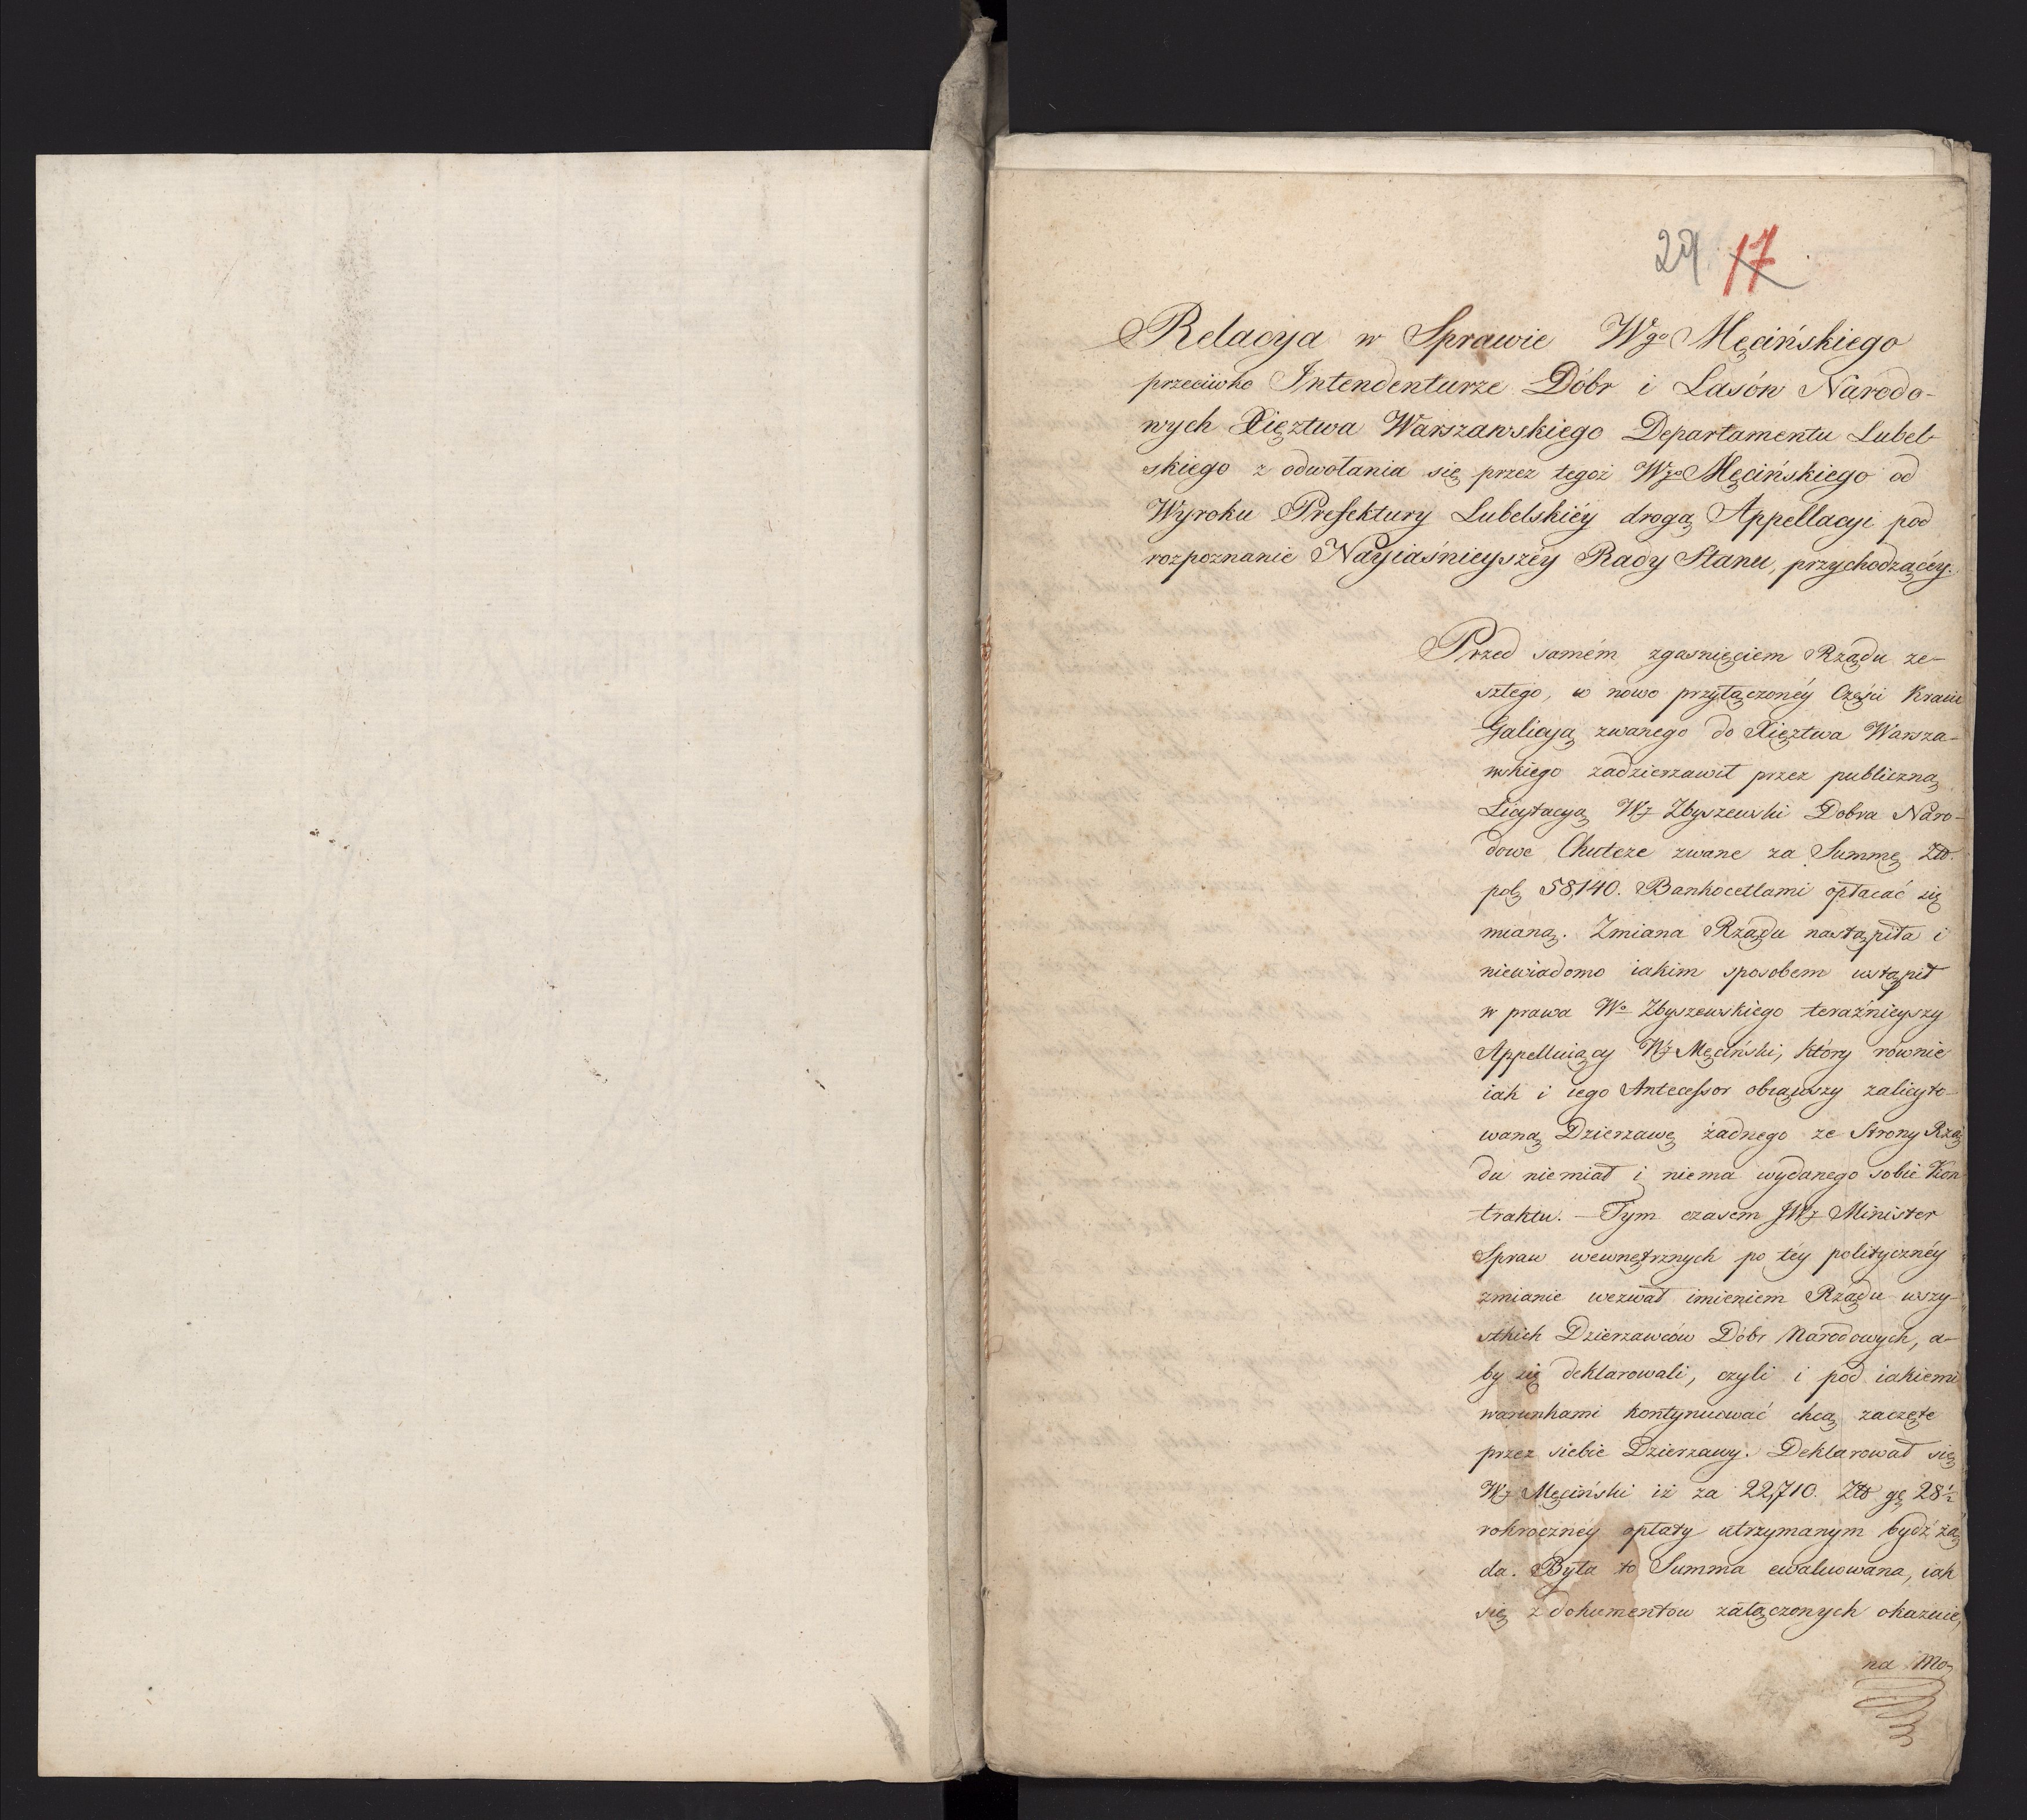 29 17
Relacya w Sprawie Wgo Męcińskiego
przeciwko Intendenturze Dóbr i Lasów Narodo-
wych Xięztwa Warszawskiego Departamentu Lubel-
skiego z odwołania się przez tegoż Wgo Męcińskiego od
Wyroku Prefektury Lubelskiéy drogą Appellacyi pod
rozpoznanie Nayiaśnieyszéy Rady Stanu, przychodzącéy.
Przed samém zgasnięciem Rządu ze-
szłego, w nowo przyłączonéy Części Kraiu
Galicyą zwanego do Xięztwa Warsza-
wskiego zadzierzawił przez publiczną
Licytacyą Wy Zbyszewski Dobra Naro-
dowe Chutcze zwane za Summę Zło.
pol. 58,140. Bankocetlami opłacać się
mianą. Zmiana Rządu nastąpiła i
niewiadomo iakim sposobem wstąpił
w prawa Wo Zbyszewskiego teraźnieyszy
Appelluiący Wy Męciński, który równie
iak i iego Antecessor obiąwszy zalicyto-
waną Dzierzawę żadnego ze Strony Rzą
du niemiał i niema wydanego sobie Kon
traktu. — Tym czasem JWy Minister
Spraw wewnętrznych po téy polityczéy
zmianie wezwał imieniem Rządu wszy-
stkich Dzierzawców Dóbr Narodowych, a-
by się deklarowali, czyli i pod iakiemi
warunkami kontynuować chcą zaczęte
przez siebie Dzierzawy. Deklarował się
Wy Męciński iż za 22,710. Zło gr. 28½
rokroczney opłaty utrzymanym bydź żą
da. Była to Summa ewaluowana, iak
się z dokumentow załączonych okazuie,
na Mo,